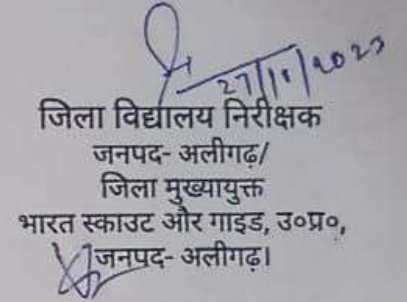 27/11/2023
जिला विद्यालय निरीक्षक
जनपद- अलीगढ़/
जिला मुख्यायुक्त
भारत स्काउट और गाइड, उ०प्र०,
जनपद- अलीगढ़।